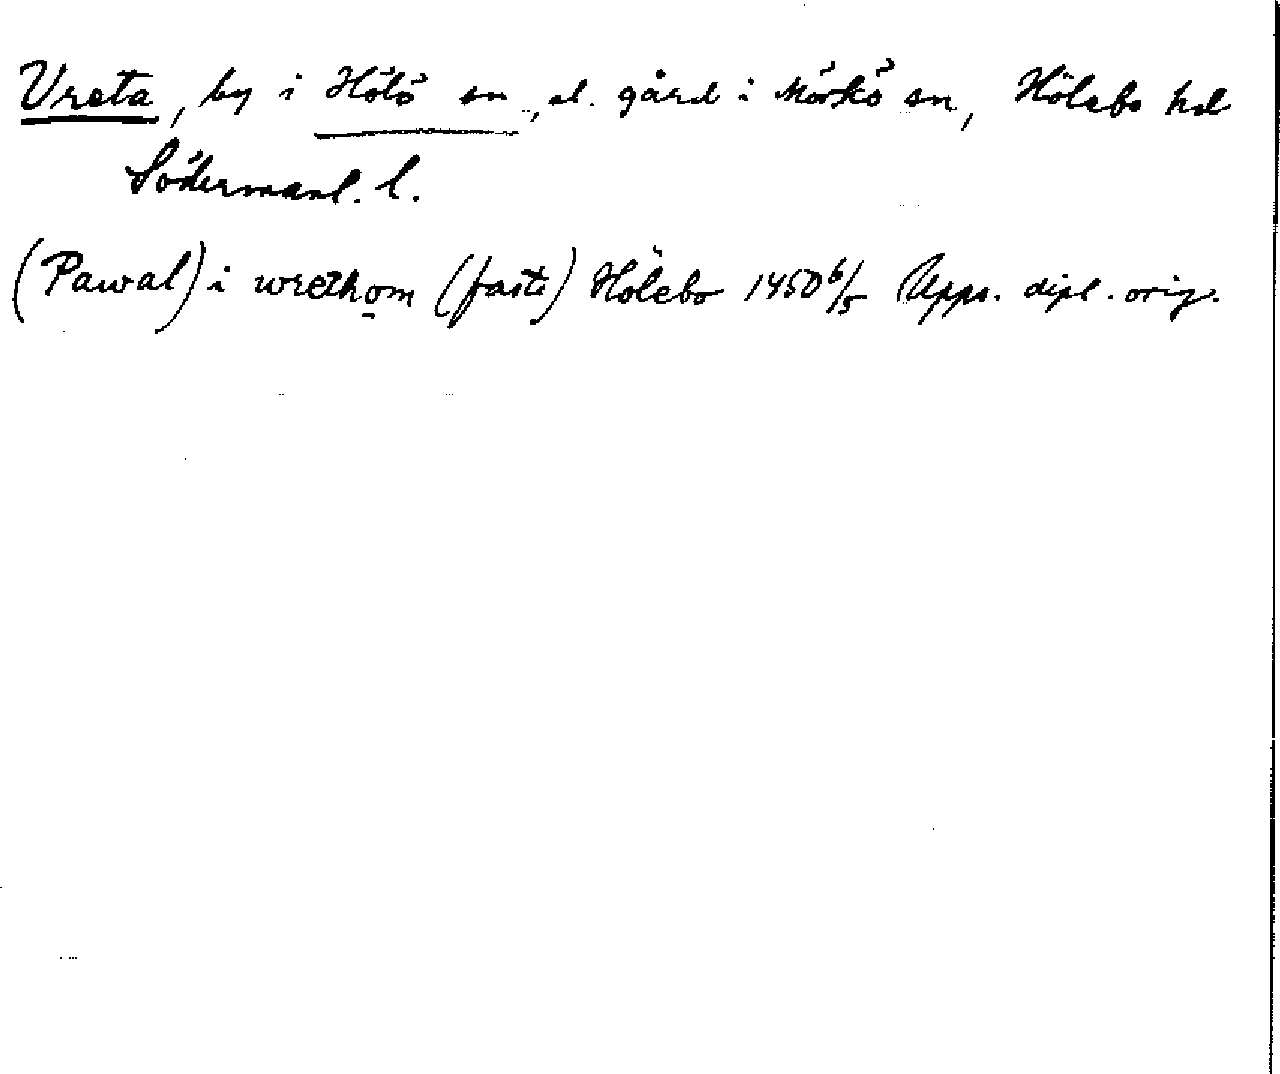 Vreta, by i Hölö sn, el. gård i Mörkö sn, Hölebo hd
Södermanl. l.
(Pawal) i wrethom (faste) Hölebo 1450 6/5 Upps. dipl. orig.